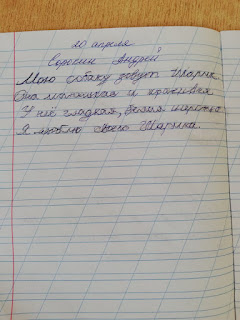 20 апреля
Сорокин Андрей
Мою собаку зовут Шарик
Она маленькая и красивая
У неё гладкая, белая шёрстка
Я люблю своего Шарика.